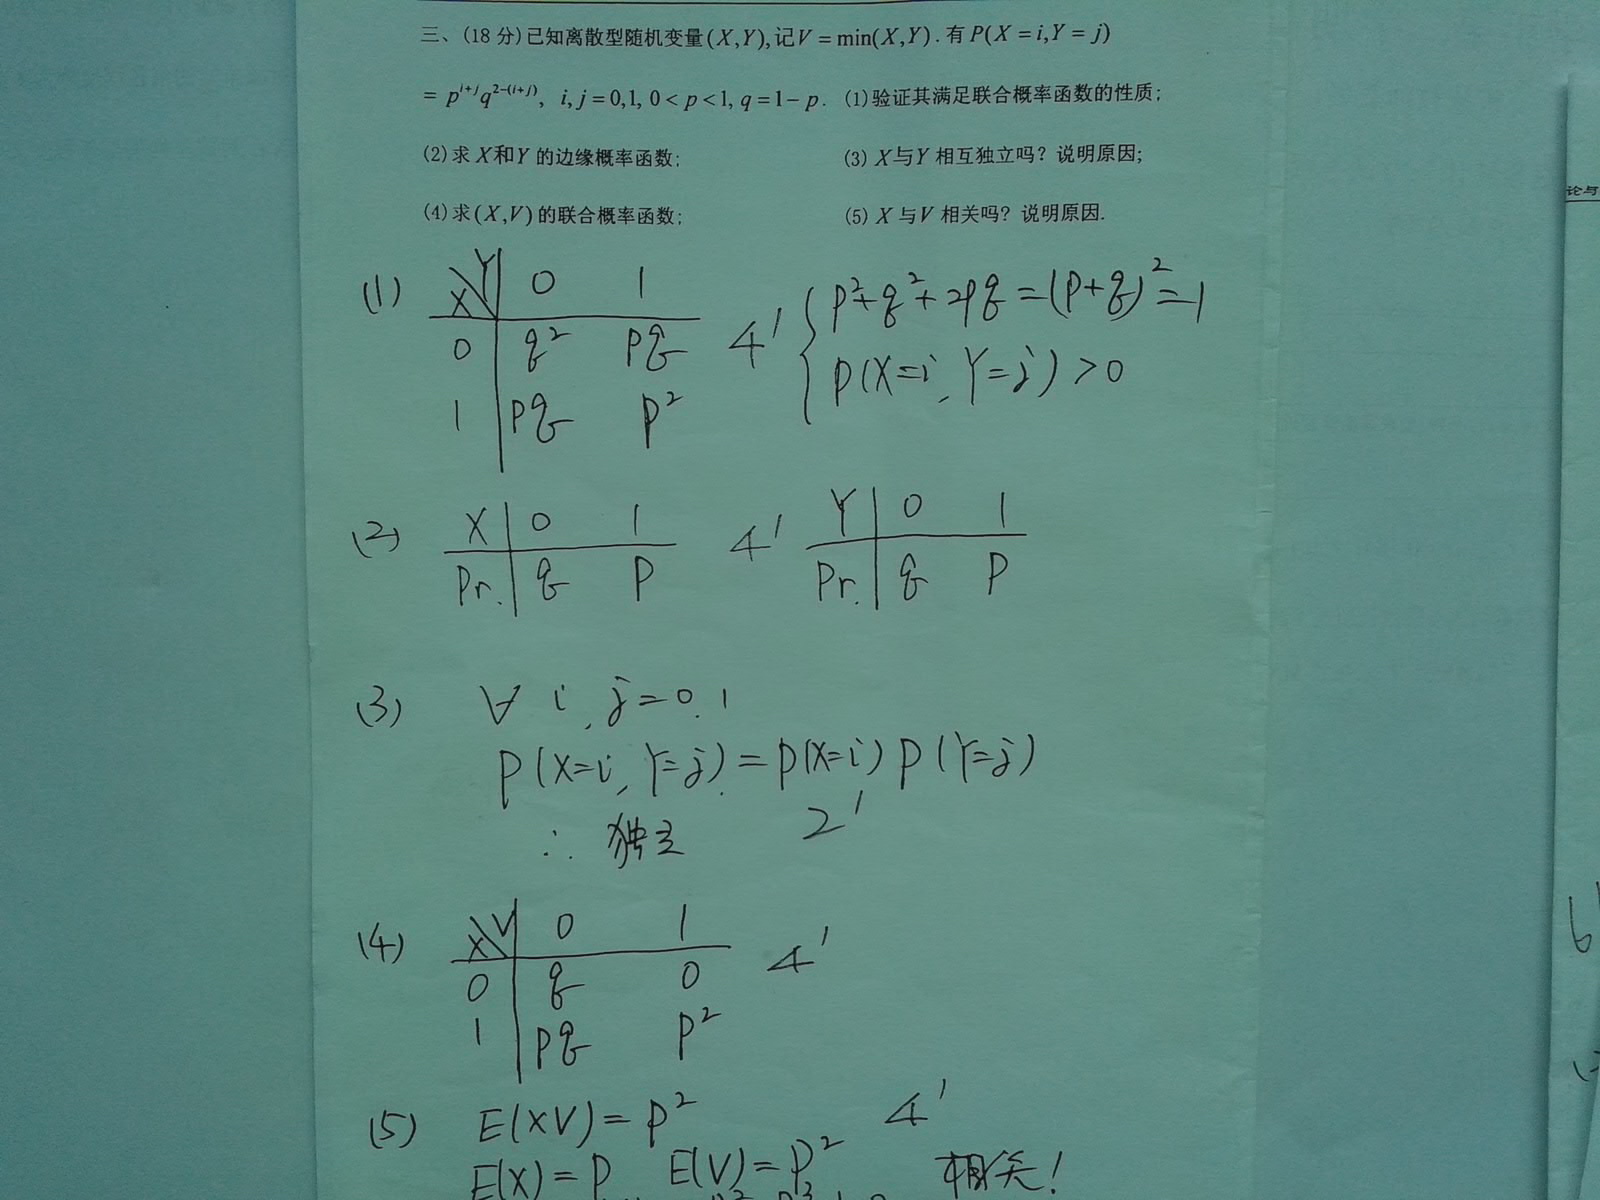 三、(18 分)已知离散型随机变量(X,Y),记V = min(X,Y). 有 P(X = i,Y = j)
= p^{i+j}q^{2-(i+j)}, i, j = 0,1, 0 < p < 1, q = 1 - p. (1)验证其满足联合概率函数的性质;
(2)求 X和Y 的边缘概率函数; (3) X与Y 相互独立吗? 说明原因;
(4)求(X,V)的联合概率函数; (5) X 与V 相关吗? 说明原因.
(1) X Y 0 1
0 q² pq
1 pq p²
4' p²+q²+2pq=(p+q)²=1
p(X=i, Y=j) > 0
(2) X 0 1
Pr. q p
4' Y 0 1
Pr. q p
(3) ∀ i, j=0.1
P(X=i, Y=j) = P(X=i) P(Y=j)
∴ 独立 2'
(4) X V 0 1 4'
0 q 0
1 pq p²
(5) E(XV)= p² 4'
E(X)= p E(V)= p² 相关!
论与